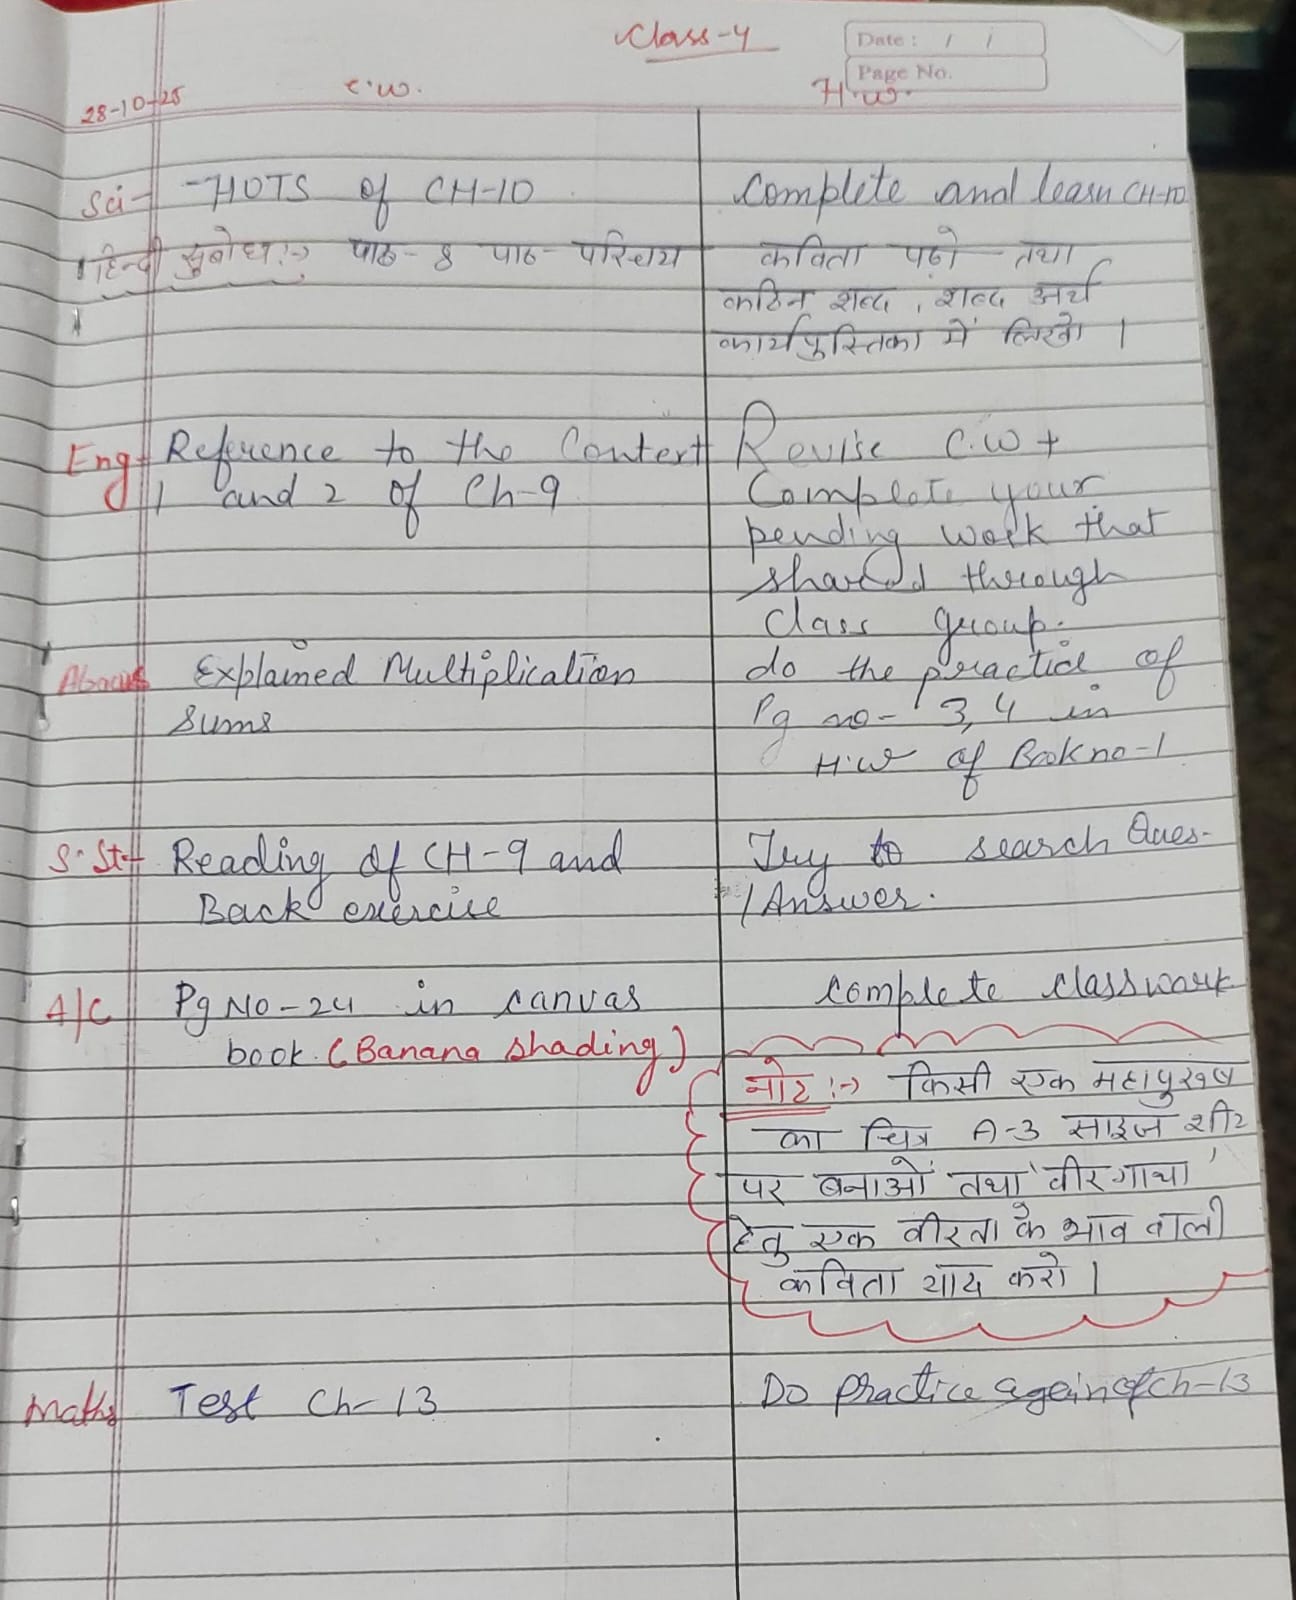 Class-4
Date: / /
Page No.
28-10-25
C.W.
H.W.
Sci- -HOTS of CH-10
Complete and learn CH-10
हिन्दी सुबोध:-> पाठ-8 पाठ-परिचय
कविता पढ़ो तथा
कठिन शब्द, शब्द अर्थ
कार्यपुस्तिका में लिखो।
Eng- Reference to the Context
1 and 2 of Ch-9
Revise C.W +
Complete your
pending work that
shared through
class group.
Abacus Explained Multiplication
sums
do the practice of
Pg no- 3,4 in
H.W of Book no-1
S.St- Reading of CH-9 and
Back exercise
Try to search Ques-
/Answer.
A/C Pg No-24 in canvas
book. (Banana shading)
Complete classwork
नोट:-> किसी एक महापुरुष
का चित्र A-3 साइज शीट
पर बनाओं तथा 'वीरगाथा'
हेतु एक वीरता के भाव वाली
कविता याद करो।
Maths Test Ch-13
Do practice agein of ch-13